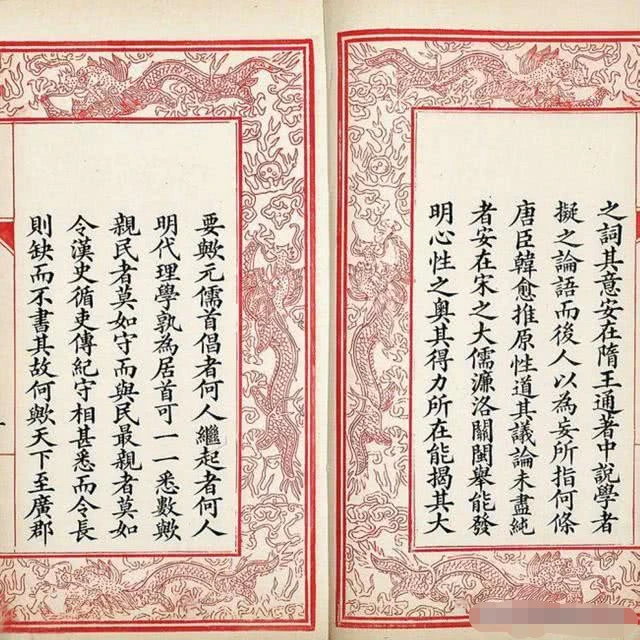 之詞其意安在隋王通著中說學者
擬之論語而後人以為妄所指何條
唐臣韓愈推原性道其議論未盡純
者安在宋之大儒濂洛關閩舉能發
明心性之奧其得力所在能揭其大
要歟元儒首倡者何人繼起者何人
明代理學孰為居首可一一悉數歟
親民者莫如守而與民最親者莫如
令漢史循吏傳紀守相甚悉而令長
則缺而不書其故何歟天下至廣郡